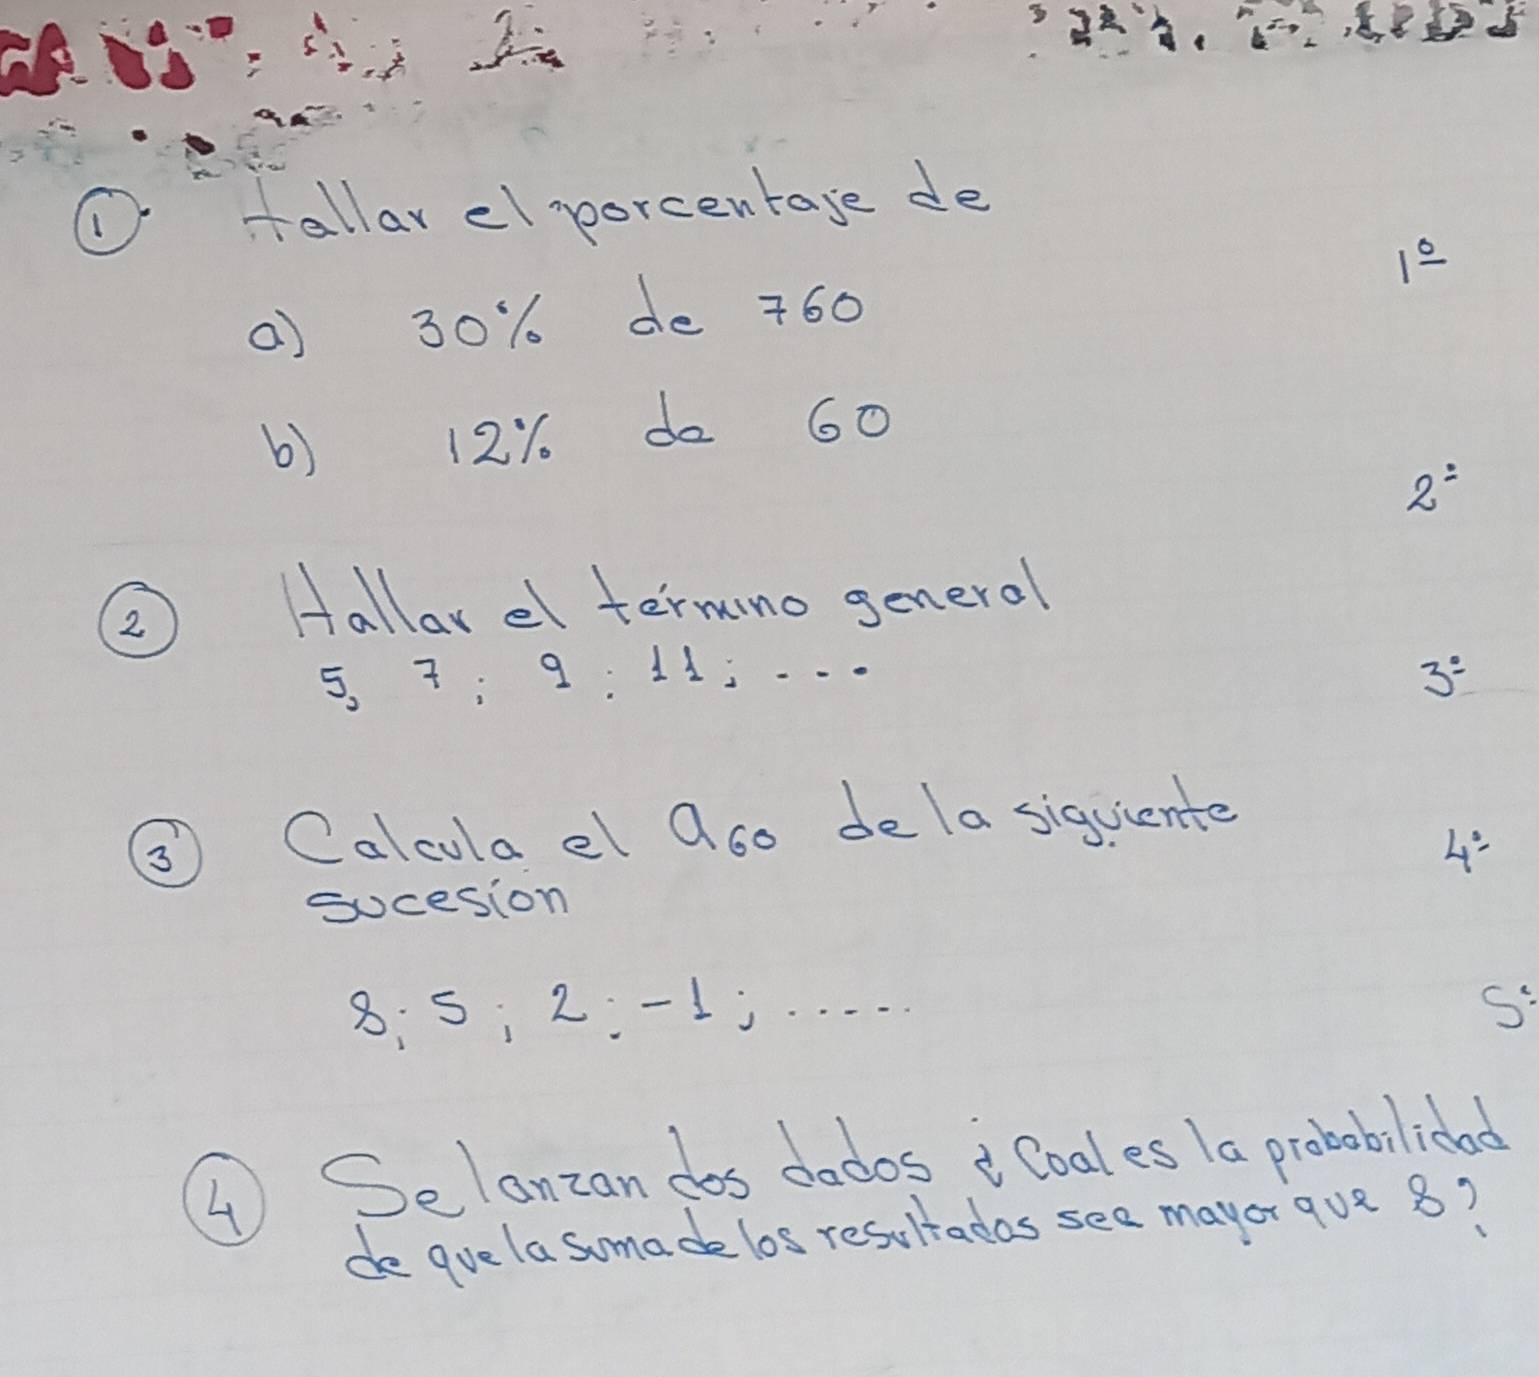 ① Hallar el porcentaje de
a) 30% de 760
b) 12% de 60
② Hallar el término general
5, 7; 9; 11; ....
③ Calcula el a60 de la siguiente
sucesión
8; 5; 2; -1; .....
④ Se lanzan dos dados ¿Coal es la probabilidad
de que la suma de los resultados sea mayor que 8?
1º
2º
3º
4º
5º